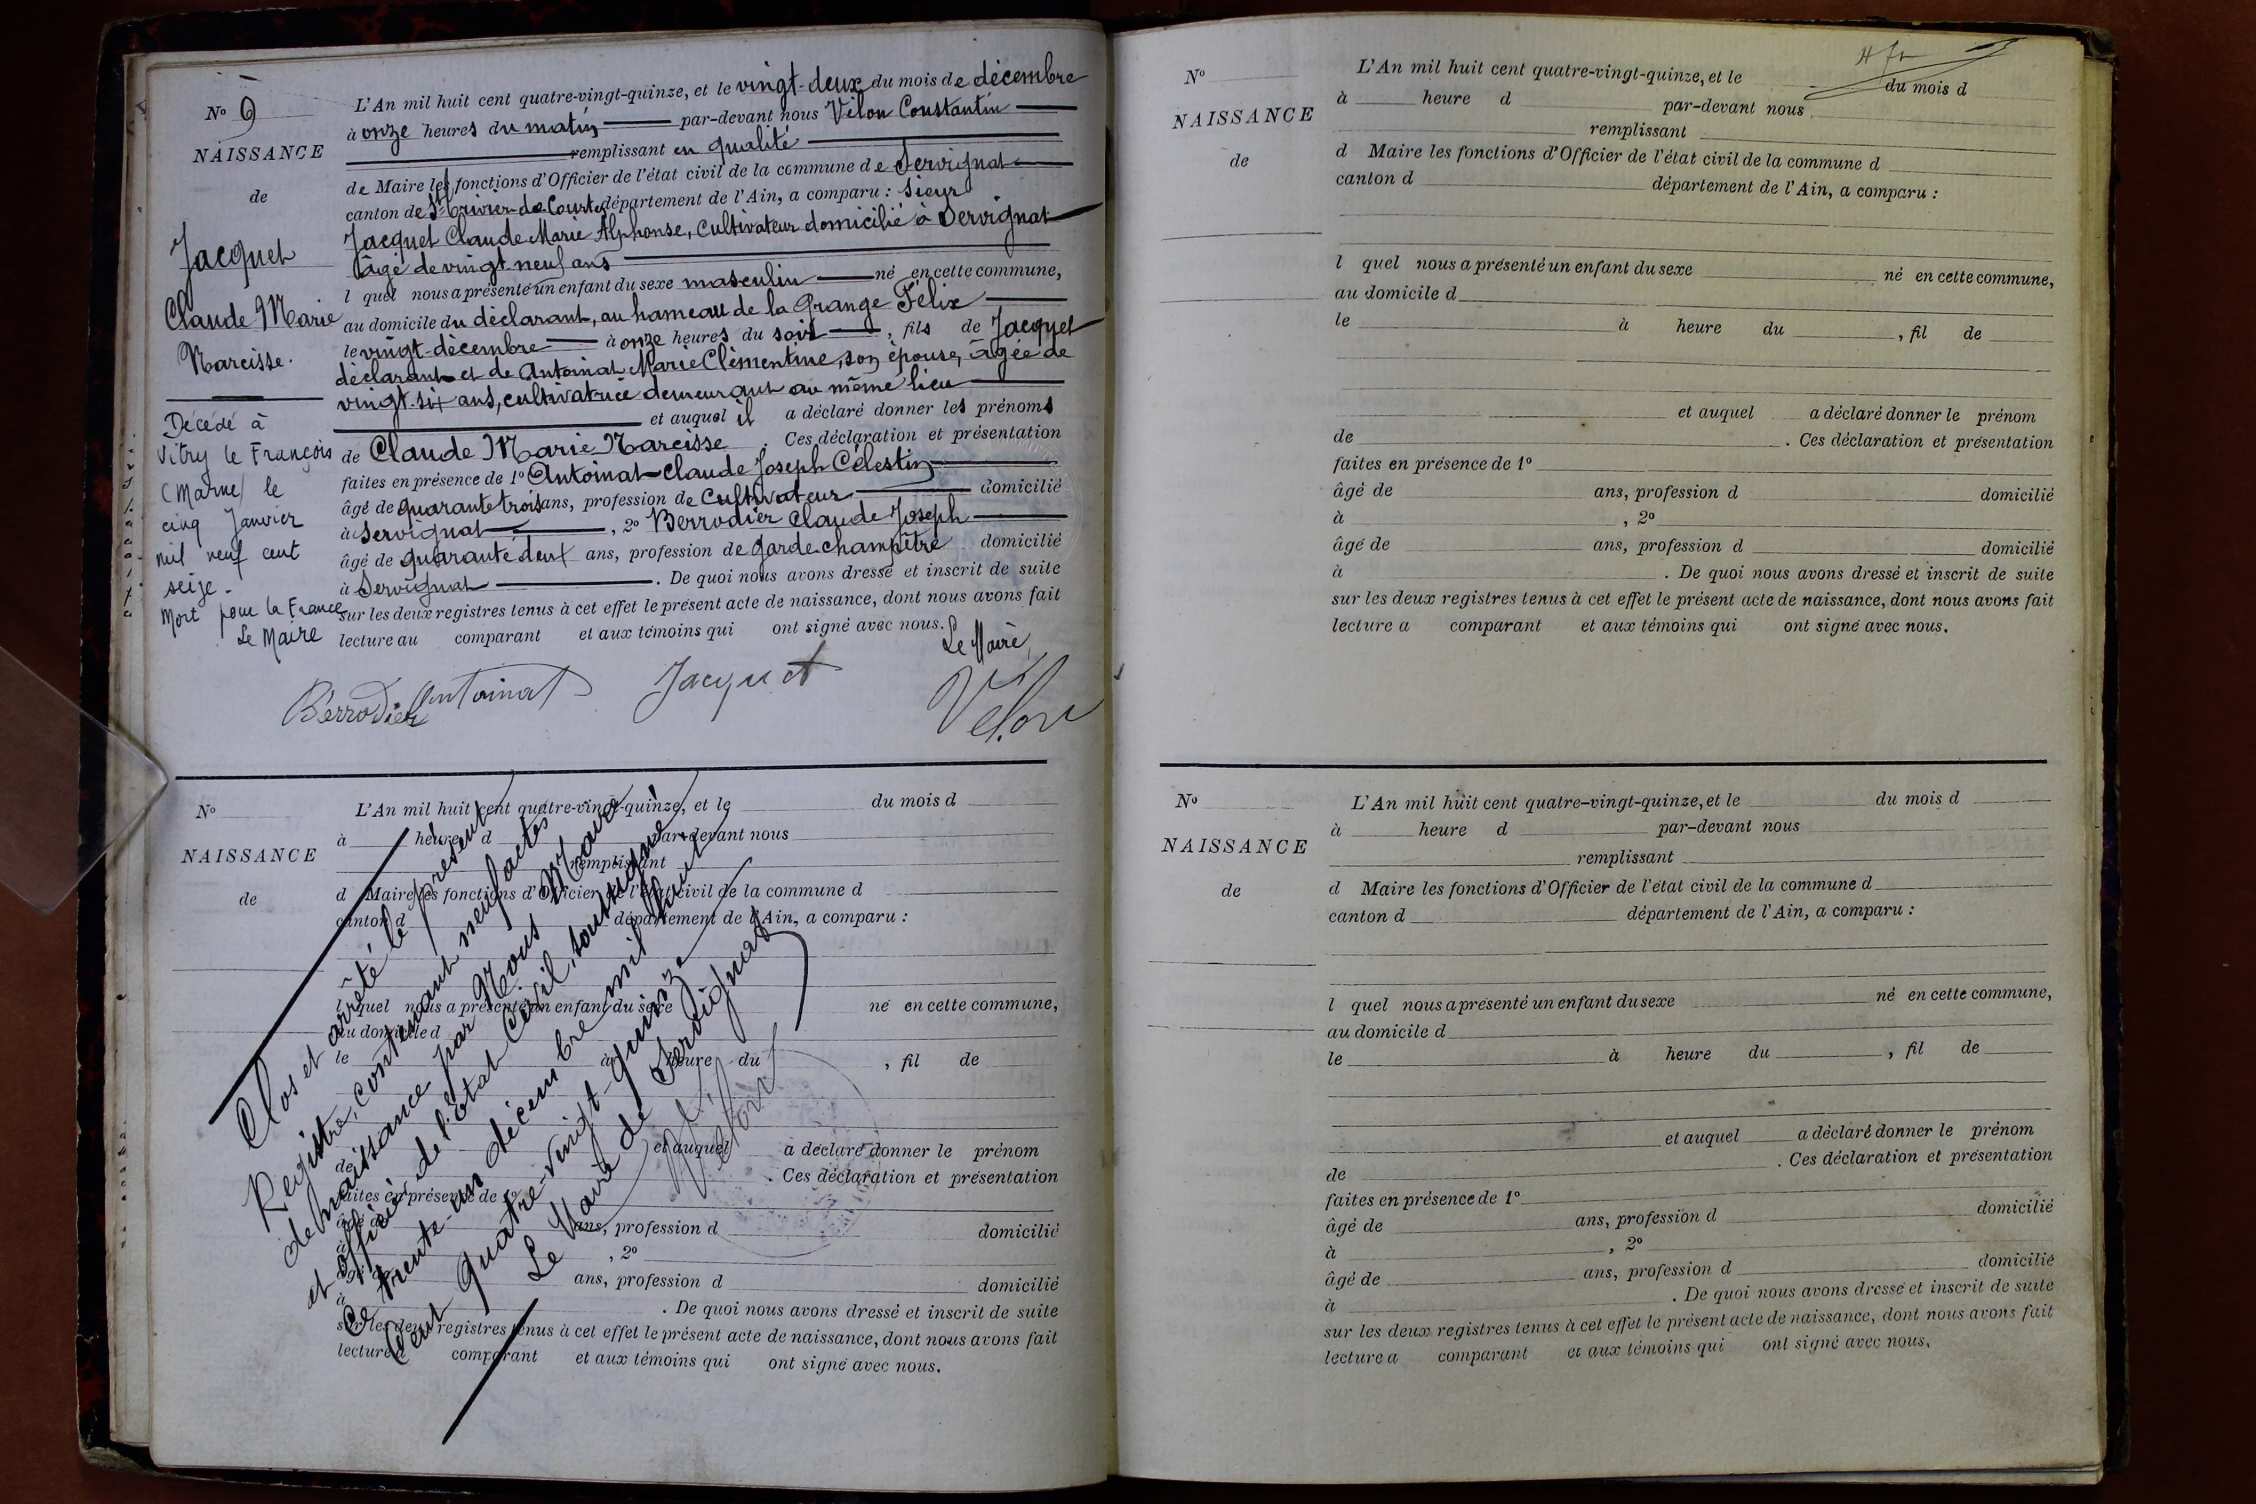 N° 9
NAISSANCE
de
Jacquet
Claude Marie
Narcisse.
Décédé à
Vitry le François
(Marne) le
cinq Janvier
mil neuf cent
seize.
Mort pour la France
Le Maire
L'An mil huit cent quatre-vingt-quinze, et le vingt-deux du mois de décembre
à onze heures du matin par-devant nous Vélon Constantin
remplissant en qualité
de Maire les fonctions d'Officier de l'état civil de la commune de Servignat
canton de St Trivier-de-Courtes département de l'Ain, a comparu : Sieur
Jacquet Claude Marie Alphonse, Cultivateur domicilié à Servignat
âgé de vingt-neuf ans
l quel nous a présenté un enfant du sexe masculin né en cette commune,
au domicile du déclarant, au hameau de la Grange Félix
le vingt-décembre à onze heures du soir, fils de Jacquet
déclarant et de Antoinat Marie Clémentine, son épouse, âgée de
vingt-six ans, cultivatrice demeurant au même lieu
et auquel il a déclaré donner les prénoms
de Claude Marie Narcisse. Ces déclaration et présentation
faites en présence de 1° Antoinat Claude Joseph Célestin
âgé de quarante trois ans, profession de Cultivateur domicilié
à Servignat, 2° Berrodier Claude Joseph
âgé de quarante deux ans, profession de garde champêtre domicilié
à Servignat. De quoi nous avons dressé et inscrit de suite
sur les deux registres tenus à cet effet le présent acte de naissance, dont nous avons fait
lecture au comparant et aux témoins qui ont signé avec nous.
Le Maire,
Berrodier Antoinat Jacquet Vélon
N°
NAISSANCE
de
L'An mil huit cent quatre-vingt-quinze, et le du mois d
à heure d par-devant nous
remplissant
d Maire les fonctions d'Officier de l'état civil de la commune d
canton d département de l'Ain, a comparu :
l quel nous a présenté un enfant du sexe né en cette commune,
au domicile d
le à heure du , fil de
et auquel a déclaré donner le prénom
de . Ces déclaration et présentation
faites en présence de 1°
âgé de ans, profession d domicilié
à , 2°
âgé de ans, profession d domicilié
à . De quoi nous avons dressé et inscrit de suite
sur les deux registres tenus à cet effet le présent acte de naissance, dont nous avons fait
lecture a comparant et aux témoins qui ont signé avec nous.
Clos et arrêté le présent
Registre, contenant neuf actes
de naissance par Nous Maire
et officier de l'état Civil, soussigné
Ce trente-un décembre mil huit
Cent quatre-vingt-quinze
Le Maire de Servignat
Vélon
N°
NAISSANCE
de
L'An mil huit cent quatre-vingt-quinze, et le du mois d
à heure d par-devant nous
remplissant
d Maire les fonctions d'Officier de l'état civil de la commune d
canton d département de l'Ain, a comparu :
l quel nous a présenté un enfant du sexe né en cette commune,
au domicile d
le à heure du , fil de
et auquel a déclaré donner le prénom
de . Ces déclaration et présentation
faites en présence de 1°
âgé de ans, profession d domicilié
à , 2°
âgé de ans, profession d domicilié
à . De quoi nous avons dressé et inscrit de suite
sur les deux registres tenus à cet effet le présent acte de naissance, dont nous avons fait
lecture a comparant et aux témoins qui ont signé avec nous.
N°
NAISSANCE
de
L'An mil huit cent quatre-vingt-quinze, et le du mois d
à heure d par-devant nous
remplissant
d Maire les fonctions d'Officier de l'état civil de la commune d
canton d département de l'Ain, a comparu :
l quel nous a présenté un enfant du sexe né en cette commune,
au domicile d
le à heure du , fil de
et auquel a déclaré donner le prénom
de . Ces déclaration et présentation
faites en présence de 1°
âgé de ans, profession d domicilié
à , 2°
âgé de ans, profession d domicilié
à . De quoi nous avons dressé et inscrit de suite
sur les deux registres tenus à cet effet le présent acte de naissance, dont nous avons fait
lecture a comparant et aux témoins qui ont signé avec nous.